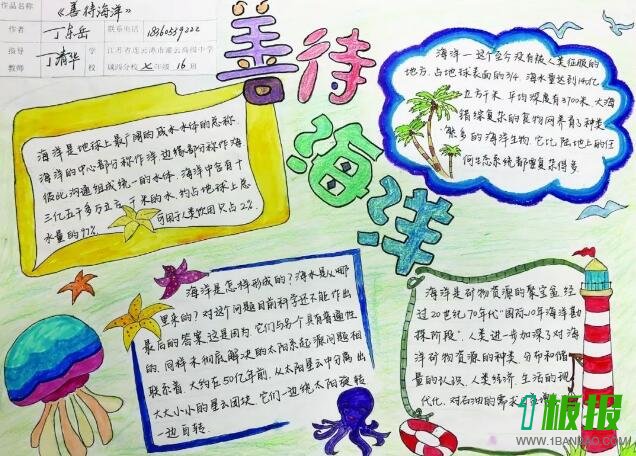 作品名称 《善待海洋》
作者 丁东岳 联系电话
指导教师 丁清华 学校 江苏省连云港市灌云高级中学城西分校七年级16班
善待
海洋
海洋是地球上最广阔的咸水水体的总称.
海洋的中心部分称作洋边缘部分称作海
彼此沟通组成统一的水体.海洋中含有十
三亿五千多万立方千米的水,约占地球上总
水量的97% 可用于人类饮用只占2%.
海洋一这个至今没有被人类征服的
地方,占地球表面的3/4,海水量达到14亿
立方千米,平均深度有3700米,大海
错综复杂的食物网养育3种类
繁多的海洋生物,它比陆地上的任
何生态系统都要复杂得多.
海洋是怎样形成的?海水是从哪
里来的?对这个问题目前科学还不能作出
最后的答案这是因为,它们与各个具有普遍性
的,同样未彻底解决的太阳系起源问题相
联系着.大约在50亿年前,从太阳星云中分离出
大大小小的星云团块.它们一边绕太阳旋转
一边自转.
海洋是矿物资源的聚宝盆经
过20世纪70年代"国际10年海洋勘
探阶段",人类进一步加深了对海
洋矿物资源的种类,分布和储
量的认识.人类经济,生活的现
代化,对石油的需求
1板报
WWW.1BANBAO.COM